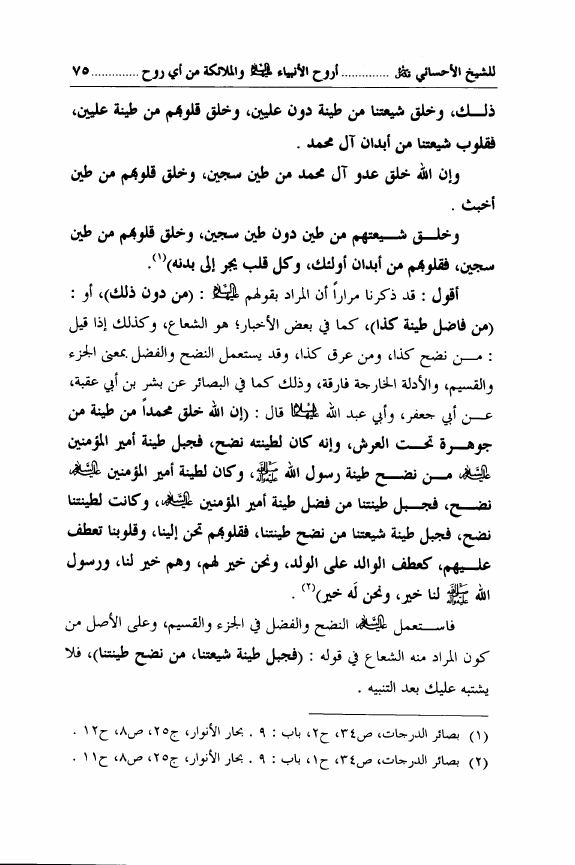 للشيخ الأحسائي قدس سره .............. أروح الأنبياء عليهم السلام والملائكة من أي روح .............. ٧٥
ذلــك، وخلق شيعتنا من طينة دون عليين، وخلق قلوبهم من طينة عليين،
فقلوب شيعتنا من أبدان آل محمد .
وإن الله خلق عدو آل محمد من طين سجين، وخلق قلوبهم من طين
أخبث .
وخلــق شــيعتهم من طين دون طين سجين، وخلق قلوبهم من طين
سجين، فقلوبهم من أبدان أولئك، وكل قلب يجر إلى بدنه)(١).
أقول : قد ذكرنا مراراً أن المراد بقولهم عليهم السلام : (من دون ذلك)، أو :
(من فاضل طينة كذا)، كما في بعض الأخبار؛ هو الشعاع، وكذلك إذا قيل
: مــن نضح كذا، ومن عرق كذا، وقد يستعمل النضح والفضل بمعنى الجزء
والقسيم، والأدلة الخارجة فارقة، وذلك كما في البصائر عن بشر بن أبي عقبة،
عــن أبي جعفر، وأبي عبد الله عليهما السلام قال : (إن الله خلق محمداً من طينة من
جوهــرة تحــت العرش، وإنه كان لطينته نضح، فجبل طينة أمير المؤمنين
عليه السلام مــن نضــح طينة رسول الله صلى الله عليه وآله، وكان لطينة أمير المؤمنين عليه السلام
نضــح، فجــبل طينتنا من فضل طينة أمير المؤمنين عليه السلام، وكانت لطينتنا
نضح، فجبل طينة شيعتنا من نضح طينتنا، فقلوبهم تحن إلينا، وقلوبنا تعطف
علــيهم، كعطف الوالد على الولد، ونحن خير لهم، وهم خير لنا، ورسول
الله صلى الله عليه وآله لنا خير، ونحن لَه خير)(٢) .
فاســتعمل عليه السلام النضح والفضل في الجزء والقسيم، وعلى الأصل من
كون المراد منه الشعاع في قوله : (فجبل طينة شيعتنا، من نضح طينتنا)، فلا
يشتبه عليك بعد التنبيه .
(١) بصائر الدرجات، ص٣٤، ح٢، باب : ٩ . بحار الأنوار، ج٢٥، ص٨، ح١٢ .
(٢) بصائر الدرجات، ص٣٤، ح١، باب : ٩ . بحار الأنوار، ج٢٥، ص٨، ح١١ .